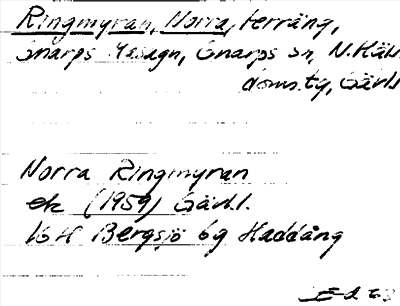 Ringmyran, Norra, terräng,
Gnarps Gnarps sn, N.Häls.
doms.tg, Gävl.
Norra Ringmyran
ek (1959) Gävl.l.
16H Bergsjö 6g Haddäng